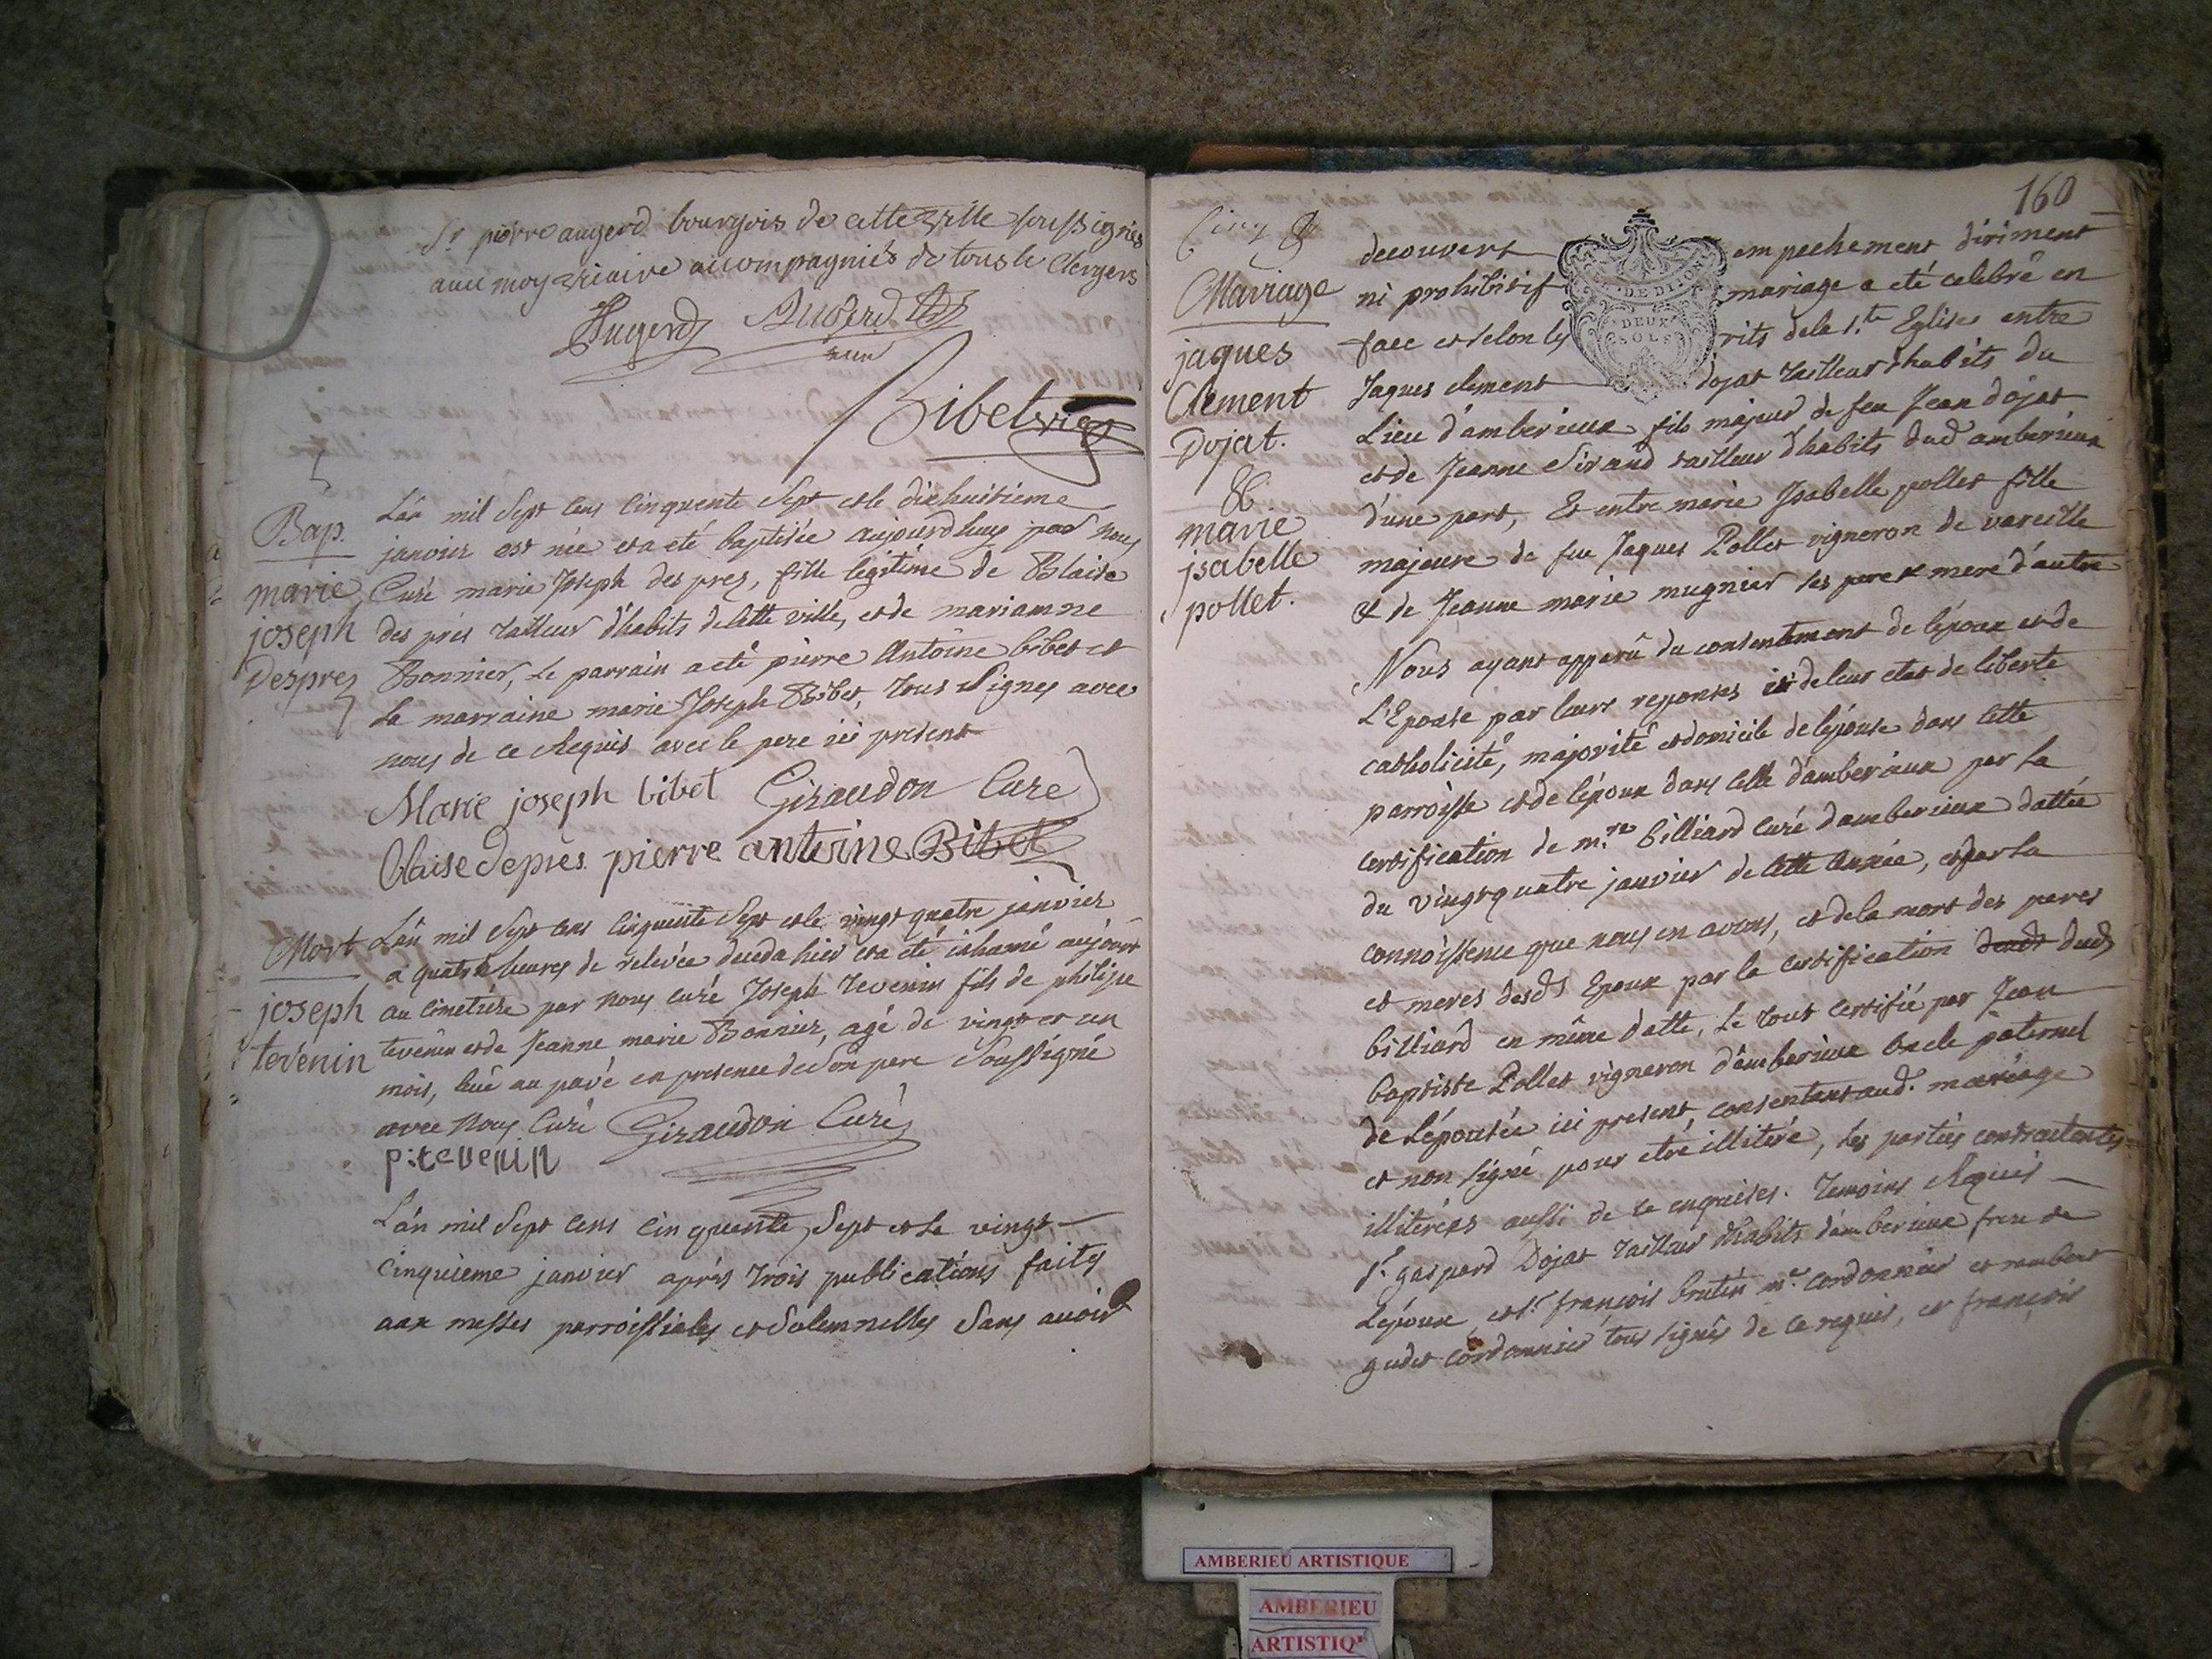 Sr pierre augerd bourgois de cette ville soussignés
avec moy vicaire accompagniés de tous le Clergers
Augerd Augerd
Bibet vic
Bap.
marie
joseph
Despres
L'an mil Sept Cens Cinquente Sept et le dixhuitieme
janvier est née et a eté baptisée aujourdhuy par nous
Curé marie Joseph des prez, fille legitime de Blaise
des prés tailleur d'habits de cette ville, et de marianne
Bonnier, Le parrain a eté pierre Antoine bibet et
La marraine marie Joseph Bibet, tous Signés avec
nous de ce Requis avec le pere ici present
Marie joseph bibet Giraudon Curé
blaise depres pierre antoine Bibet
Mort
joseph
tevenin
L'an mil Sept Cens Cinquente Sept et le vingt quatre janvier
a quatre heures de relevée deceda hier et a eté inhumé aujourd
au Cimetiére par nous curé Joseph tevenin fils de philipe
tevenin et de Jeanne marie Bonnier, agé de vingt et un
mois, au pavé en presence de Son pere Soussigné
avec Nous Curé Giraudon Curé
p: tevenin
L'an mil Sept Cens Cinquente Sept et le vingt
cinquieme janvier aprés trois publications faites
aux messes parroissiales et Solemnelles Sans avoir
160
Mariage
jaques
Clement
Dojat.
&
marie
jsabelle
pollet.
decouvert empechement diriment
ni prohibitif mariage a eté celebré en
face et selon les rits de la Ste Eglise entre
Jaques clement dojat tailleur d'habits du
Lieu d'amberieux fils majeur de feu Jean dojat
et de Jeanne Sirand tailleur d'habits dud amberieux
d'une part, Et entre marie Jsabelle pollet fille
majeure de feu Jaques Pollet vigneron de vareille
& de Jeanne marie mugnier ses pere & mere d'autre
Nous ayant apparû du consentement de l'époux et de
L'Epouse par leurs reponses et de leur etat de liberté
catholicité, majorité et domicile de lépouse dans cette
parroisse et de lépoux dans celle d'amberieux par la
certification de mre billiard curé d'amberieux dattée
du vingt quatre janvier de cette année, et par la
connoissence que nous en avons, et de la mort des peres
et meres desds Epoux par la certification dud
billiard en même datte, Le tout certifié par Jean
baptiste Pollet vigneron d'amberieux oncle paternel
de L'épousée ici present, consentant aud. mariage
et non signé pour etre illiteré, les parties contractantes
illiterées aussi de ce enquises. temoins Requis
Sr gaspard Dojat tailleur d'habits d'amberieux frere de
L'époux, et Sr françois brutin me cordonnier et rambert
gudet cordonnier tous signés de ce requis, et françois
DE DIJON
DEUX
SOLS
AMBERIEU ARTISTIQUE
AMBERIEU
ARTISTIQ